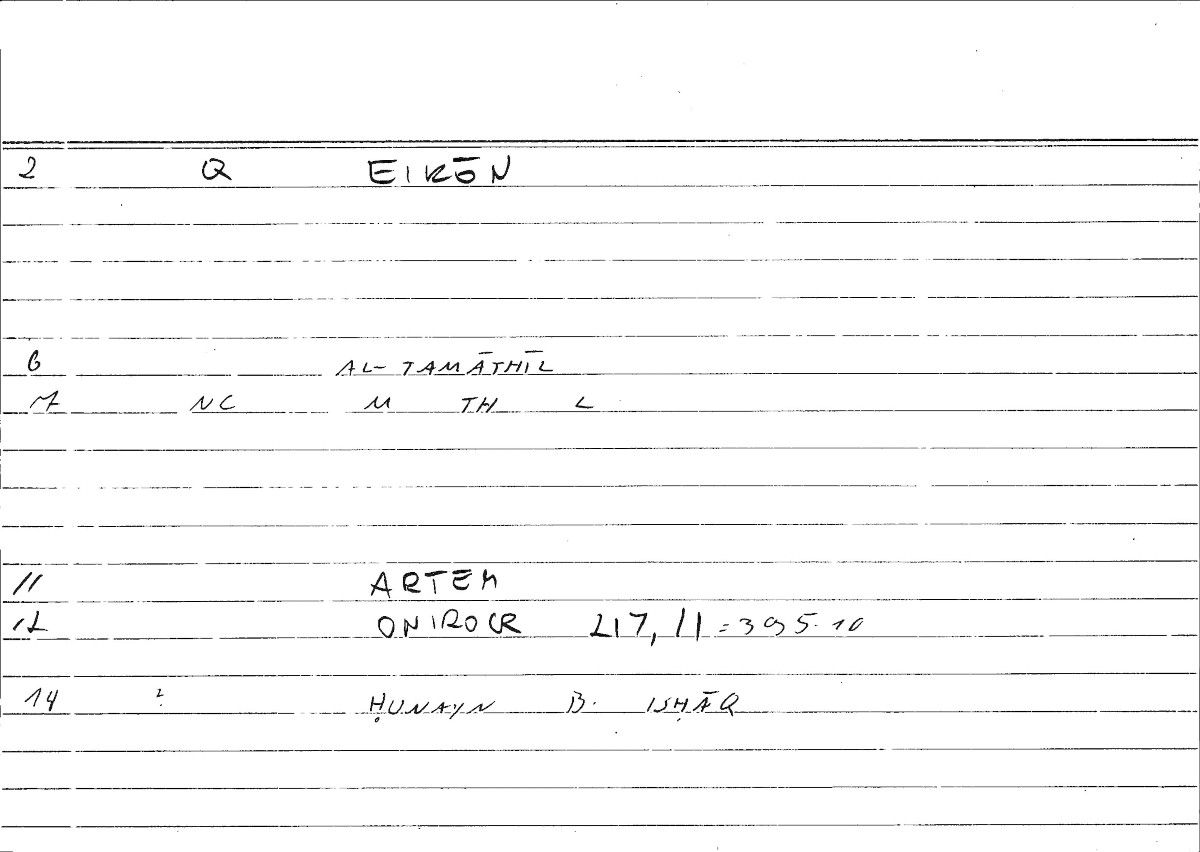 2 Q EIKŌN
6 AL-TAMĀTHĪL
7 NC M TH L
11 ARTEM
12 ONIROCR 217, 11 = 395.10
14 2 ḤUNAYN B. ISḤĀQ